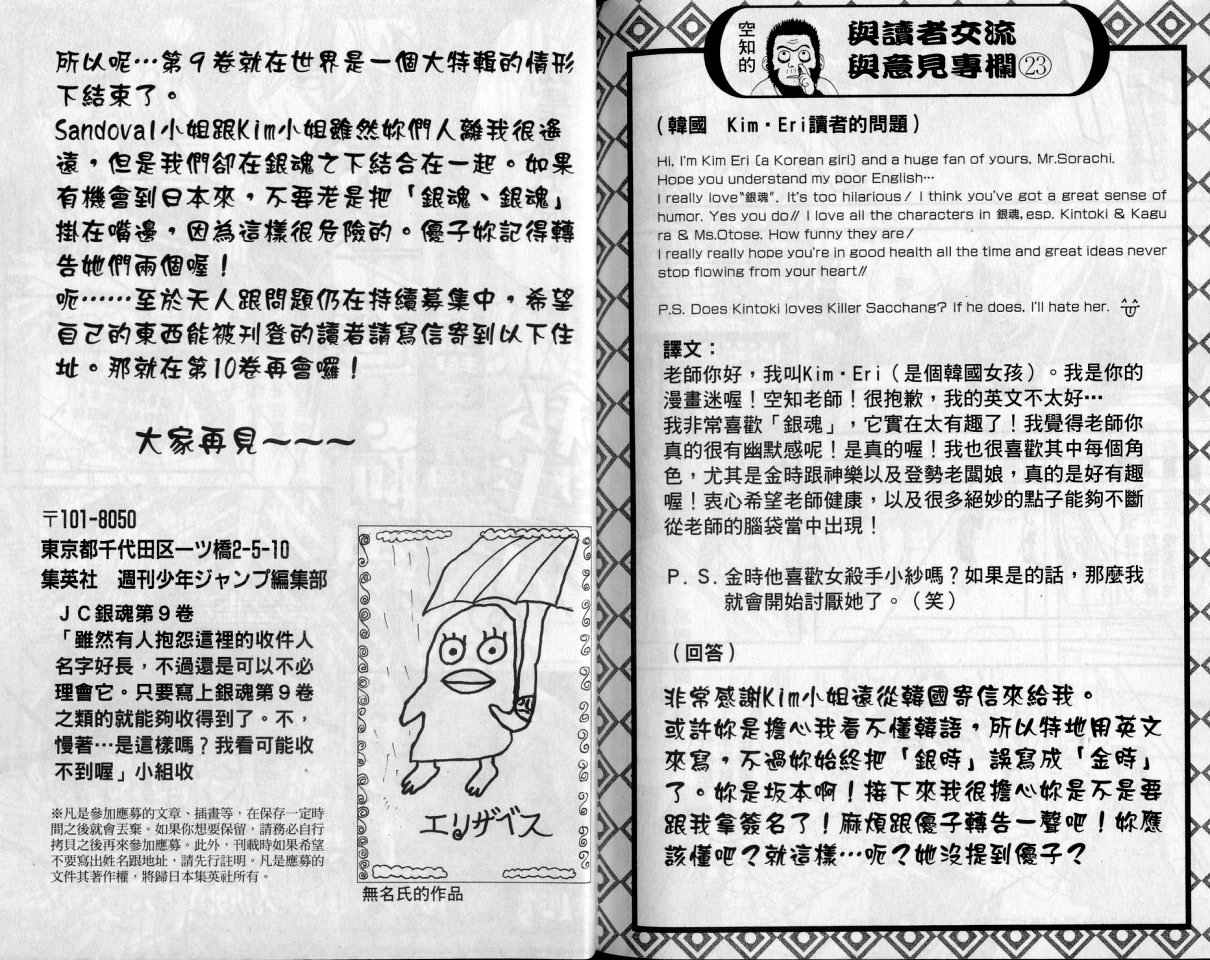 空知的
與讀者交流
與意見專欄㉓
(韓國 Kim・Eri讀者的問題)
Hi, I'm Kim Eri (a Korean girl) and a huge fan of yours, Mr.Sorachi.
Hope you understand my poor English…
I really love"銀魂". It's too hilarious! I think you've got a great sense of
humor. Yes you do!! I love all the characters in 銀魂, esp. Kintoki & Kagu
ra & Ms.Otose. How funny they are!
I really really hope you're in good health all the time and great ideas never
stop flowing from your heart!!
P.S. Does Kintoki loves Killer Sacchang? If he does, I'll hate her. ^^
譯文:
老師你好,我叫Kim・Eri(是個韓國女孩)。我是你的
漫畫迷喔!空知老師!很抱歉,我的英文不太好…
我非常喜歡「銀魂」,它實在太有趣了!我覺得老師你
真的很有幽默感呢!是真的喔!我也很喜歡其中每個角
色,尤其是金時跟神樂以及登勢老闆娘,真的是好有趣
喔!衷心希望老師健康,以及很多絕妙的點子能夠不斷
從老師的腦袋當中出現!
P.S.金時他喜歡女殺手小紗嗎?如果是的話,那麼我
就會開始討厭她了。(笑)
(回答)
非常感謝Kim小姐遠從韓國寄信來給我。
或許妳是擔心我看不懂韓語,所以特地用英文
來寫,不過妳始終把「銀時」誤寫成「金時」
了。妳是坂本啊!接下來我很擔心妳是不是要
跟我拿簽名了!麻煩跟優子轉告一聲吧!妳應
該懂吧?就這樣…呃?她沒提到優子?
所以呢…第9卷就在世界是一個大特輯的情形
下結束了。
Sandoval小姐跟Kim小姐雖然妳們人離我很遙
遠,但是我們卻在銀魂之下結合在一起。如果
有機會到日本來,不要老是把「銀魂、銀魂」
掛在嘴邊,因為這樣很危險的。優子妳記得轉
告她們兩個喔!
呃……至於天人跟問題仍在持續募集中,希望
自己的東西能被刊登的讀者請寫信寄到以下住
址。那就在第10卷再會囉!
大家再見～～～
〒101-8050
東京都千代田区一ツ橋2-5-10
集英社 週刊少年ジャンプ編集部
JC銀魂第9卷
「雖然有人抱怨這裡的收件人
名字好長,不過還是可以不必
理會它。只要寫上銀魂第9卷
之類的就能夠收得到了。不,
慢著…是這樣嗎?我看可能收
不到喔」小組收
※凡是參加應募的文章、插畫等,在保存一定時
間之後就會丟棄。如果你想要保留,請務必自行
拷貝之後再來參加應募。此外,刊載時如果希望
不要寫出姓名跟地址,請先行註明。凡是應募的
文件其著作權,將歸日本集英社所有。
エリザベス
無名氏的作品